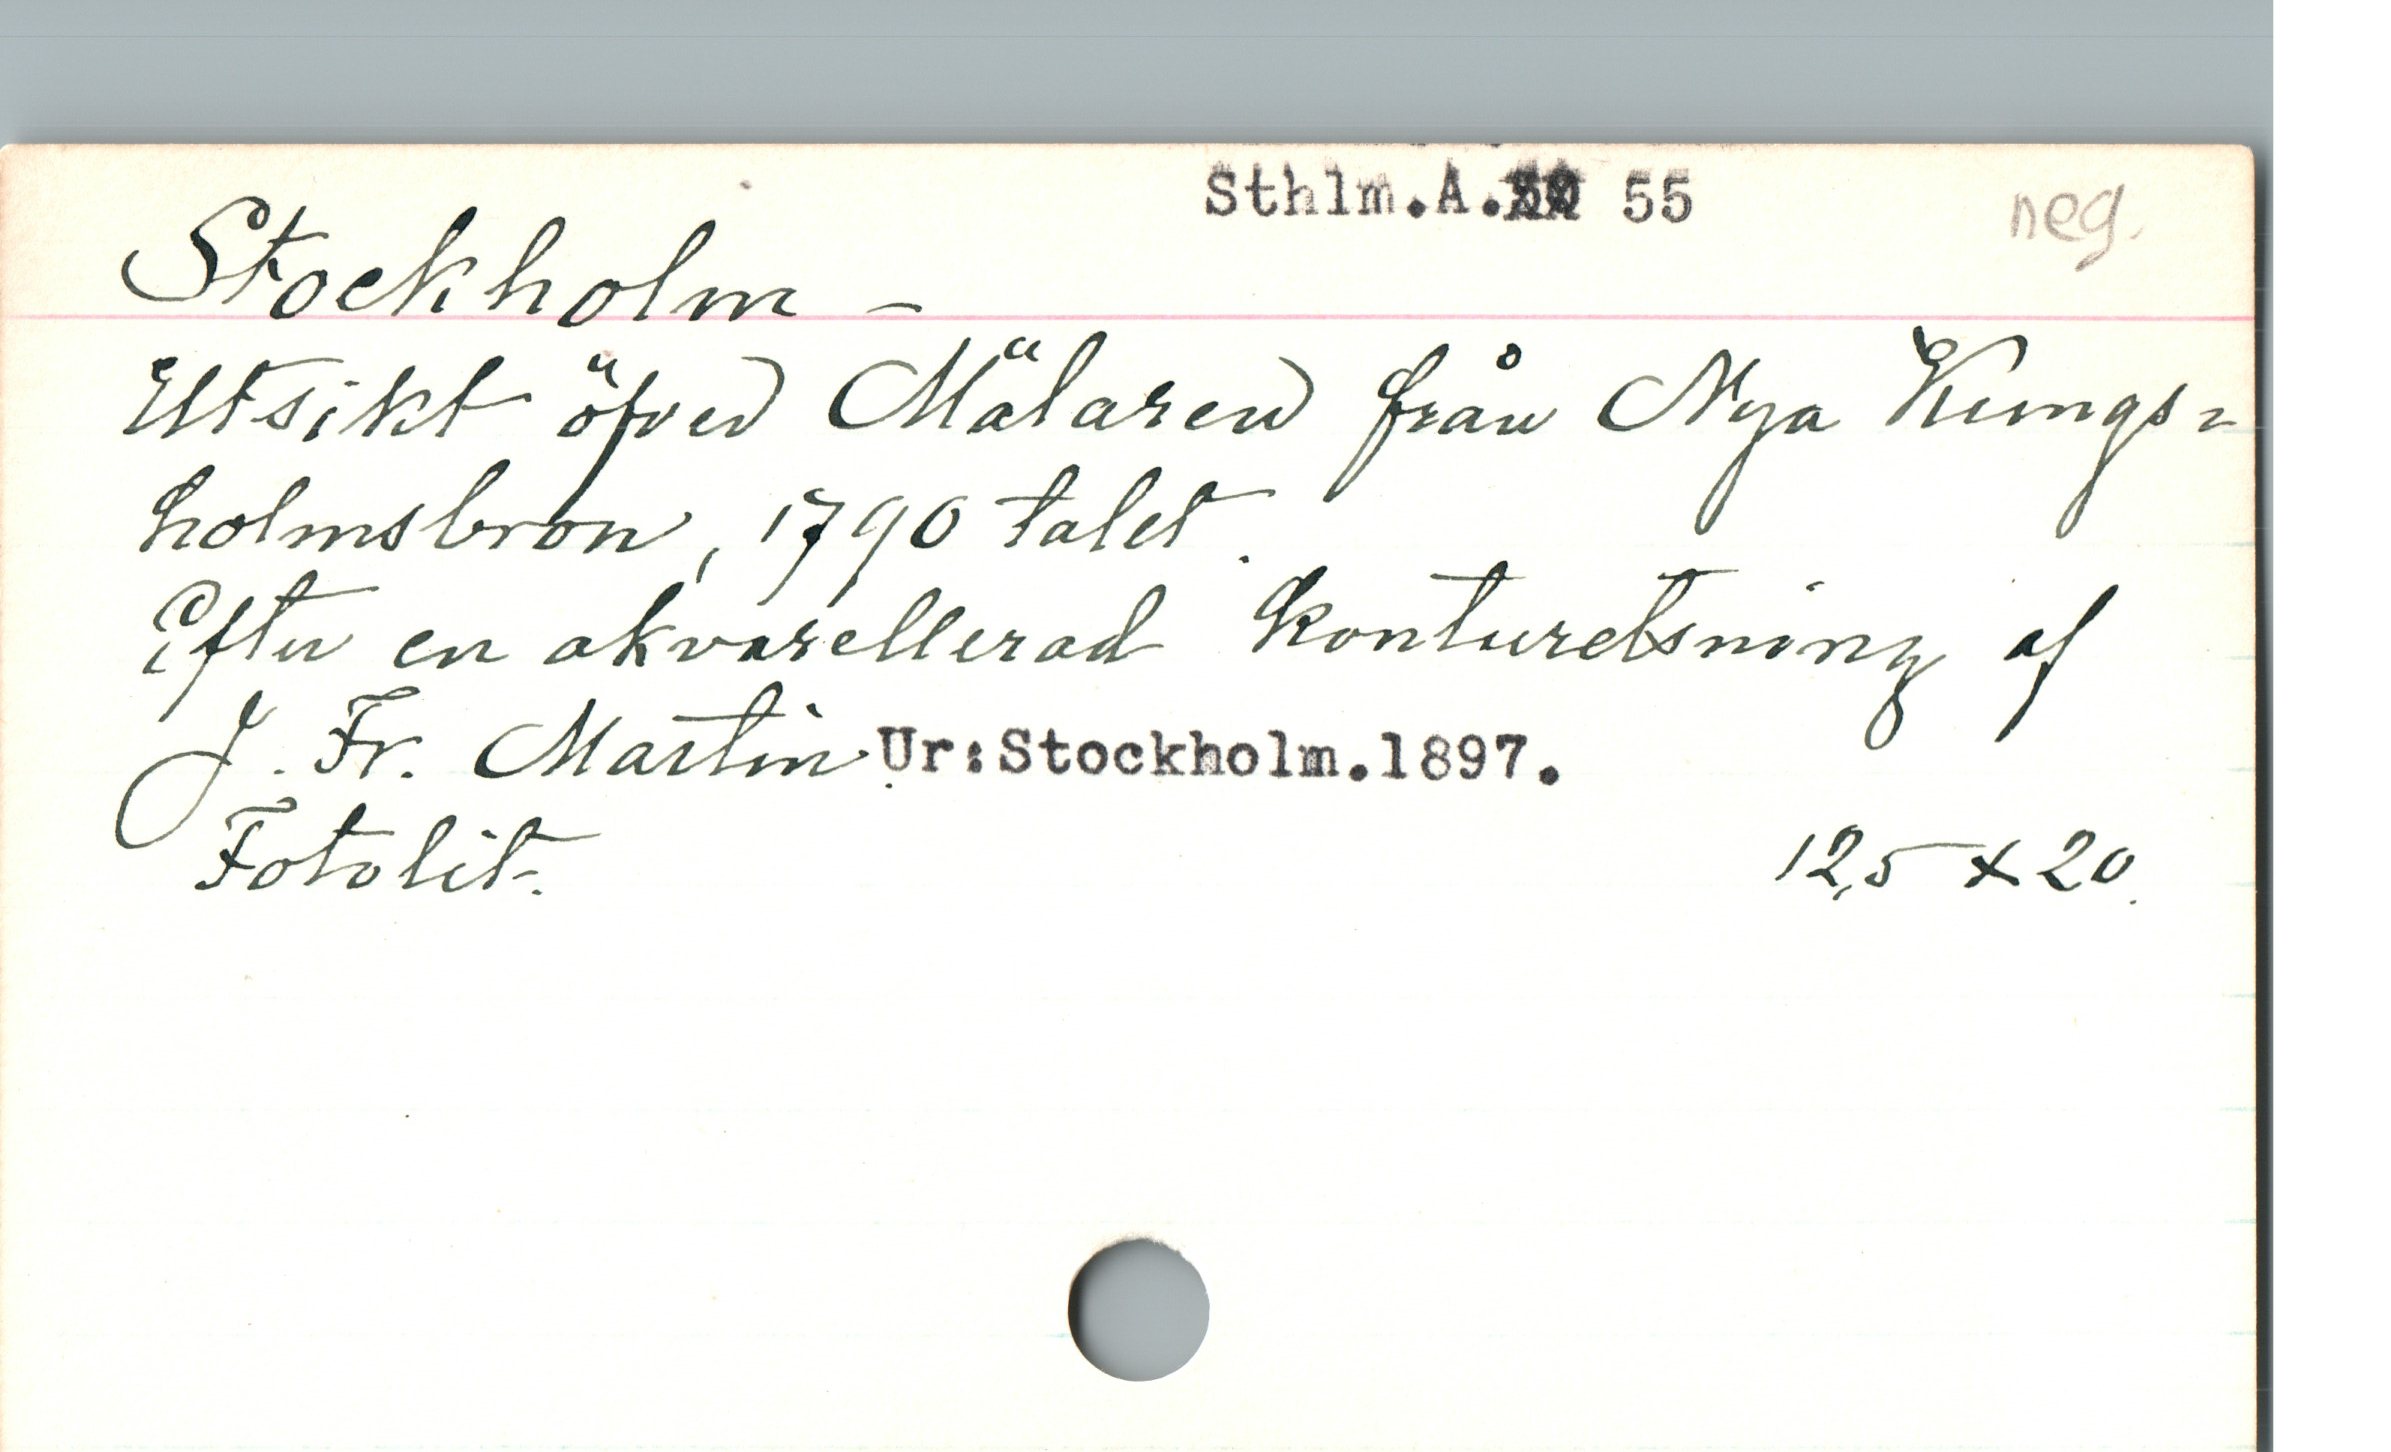 Sthlm.A. 55
neg.
Stockholm –
Utsikt öfver Mälaren från Nya Kungs-
holmsbron, 1790 talet.
Efter en akvarellerad konturetsning af
J. Fr. Martin. Ur:Stockholm.1897.
Fotolit. 12,5 x 20.